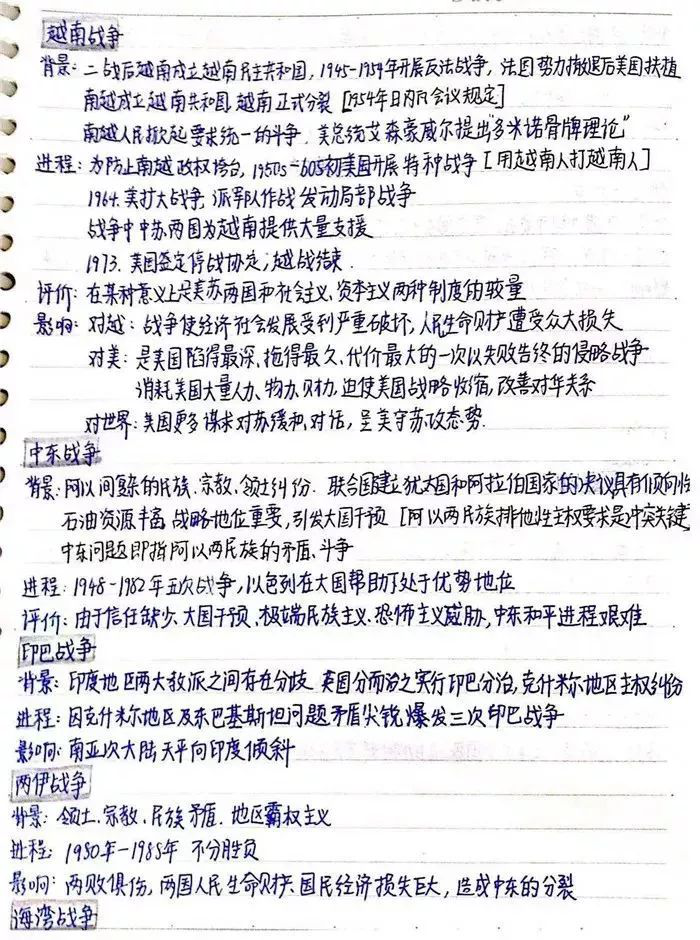 越南战争
背景：二战后越南成立越南民主共和国，1945-1954年开展反法战争，法国势力撤退后美国扶植
南越成立越南共和国，越南正式分裂［1954年日内瓦会议规定］
南越人民掀起要求统一的斗争，美总统艾森豪威尔提出“多米诺骨牌理论”
进程：为防止南越政权垮台，1950s-60s初美国开展特种战争［用越南人打越南人］
1964.美扩大战争，派军队作战发动局部战争
战争中中苏两国为越南提供大量支援
1973.美国签定停战协定，越战结束.
评价：在某种意义上是美苏两国和社会主义、资本主义两种制度的较量
影响：对越：战争使经济社会发展受到严重破坏，人民生命财产遭受重大损失
对美：是美国陷得最深、拖得最久、代价最大的一次以失败告终的侵略战争
消耗美国大量人力、物力、财力，迫使美国战略收缩，改善对华关系
对世界：美国更多谋求对苏缓和、对话，呈美守苏攻态势.
中东战争
背景：阿以间复杂的民族、宗教、领土纠纷．联合国建立犹太国和阿拉伯国家的决议具有倾向性
石油资源丰富，战略地位重要，引发大国干预［阿以两民族排他性主权要求是冲突关键］
中东问题即指阿以两民族的矛盾、斗争
进程：1948-1982年五次战争，以色列在大国帮助下处于优势地位
评价：由于信任缺少、大国干预、极端民族主义、恐怖主义威胁，中东和平进程艰难
印巴战争
背景：印度地区两大教派之间存在分歧，英国分而治之实行印巴分治，克什米尔地区主权纠纷
进程：因克什米尔地区及东巴基斯坦问题矛盾尖锐，爆发三次印巴战争
影响：南亚次大陆天平向印度倾斜
两伊战争
背景：领土、宗教、民族矛盾．地区霸权主义
进程：1980年-1988年 不分胜负
影响：两败俱伤，两国人民生命财产、国民经济损失巨大，造成中东的分裂
海湾战争